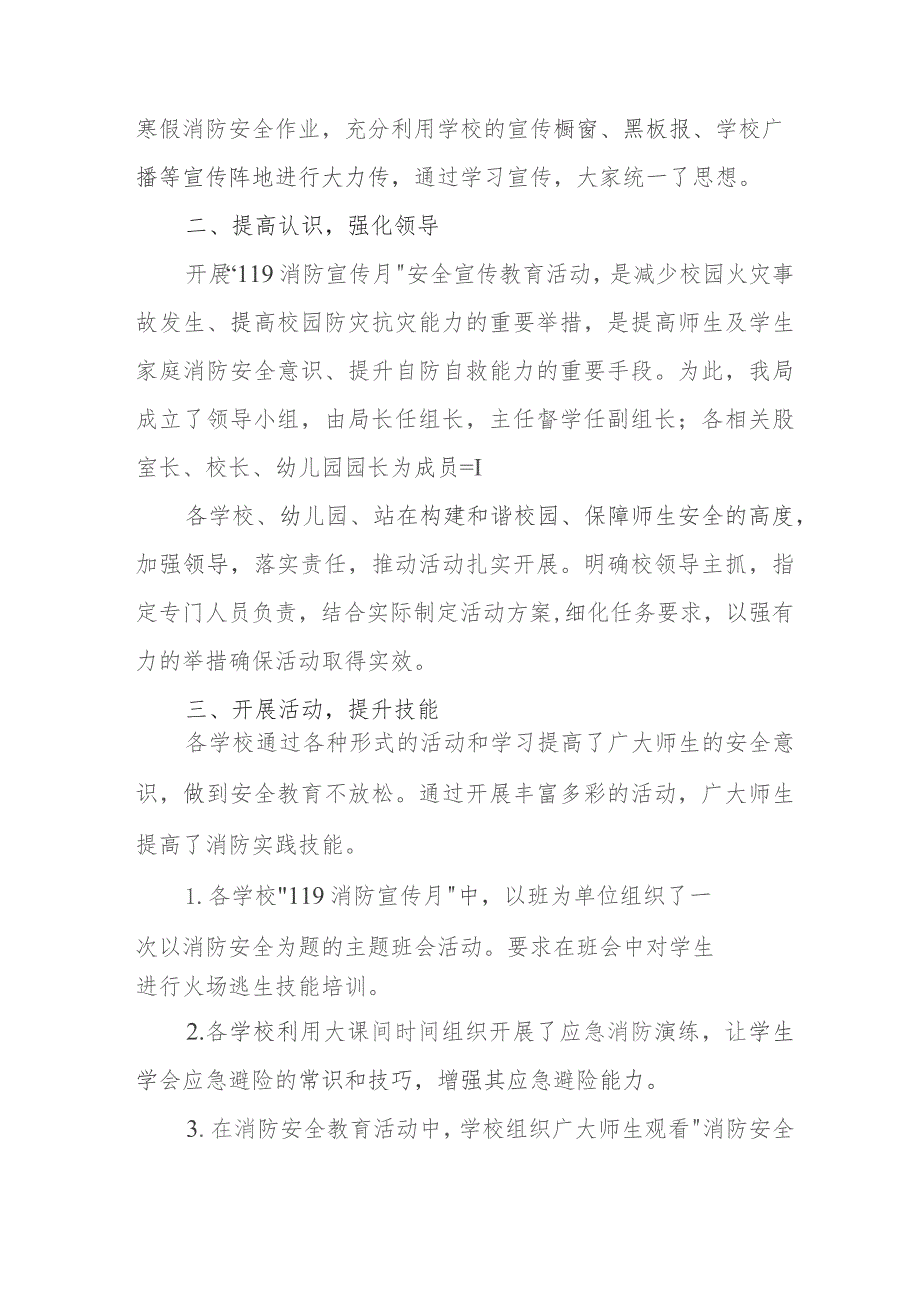 寒假消防安全作业，充分利用学校的宣传橱窗、黑板报、学校广
播等宣传阵地进行大力传，通过学习宣传，大家统一了思想。
二、提高认识，强化领导
开展“119消防宣传月"安全宣传教育活动，是减少校园火灾事
故发生、提高校园防灾抗灾能力的重要举措，是提高师生及学生
家庭消防安全意识、提升自防自救能力的重要手段。为此，我局
成立了领导小组，由局长任组长，主任督学任副组长；各相关股
室长、校长、幼儿园园长为成员=I
各学校、幼儿园、站在构建和谐校园、保障师生安全的高度，
加强领导，落实责任，推动活动扎实开展。明确校领导主抓，指
定专门人员负责，结合实际制定活动方案,细化任务要求，以强有
力的举措确保活动取得实效。
三、开展活动，提升技能
各学校通过各种形式的活动和学习提高了广大师生的安全意
识，做到安全教育不放松。通过开展丰富多彩的活动，广大师生
提高了消防实践技能。
1. 各学校"119消防宣传月"中，以班为单位组织了一
次以消防安全为题的主题班会活动。要求在班会中对学生
进行火场逃生技能培训。
2.各学校利用大课间时间组织开展了应急消防演练，让学生
学会应急避险的常识和技巧，增强其应急避险能力。
3. 在消防安全教育活动中，学校组织广大师生观看"消防安全